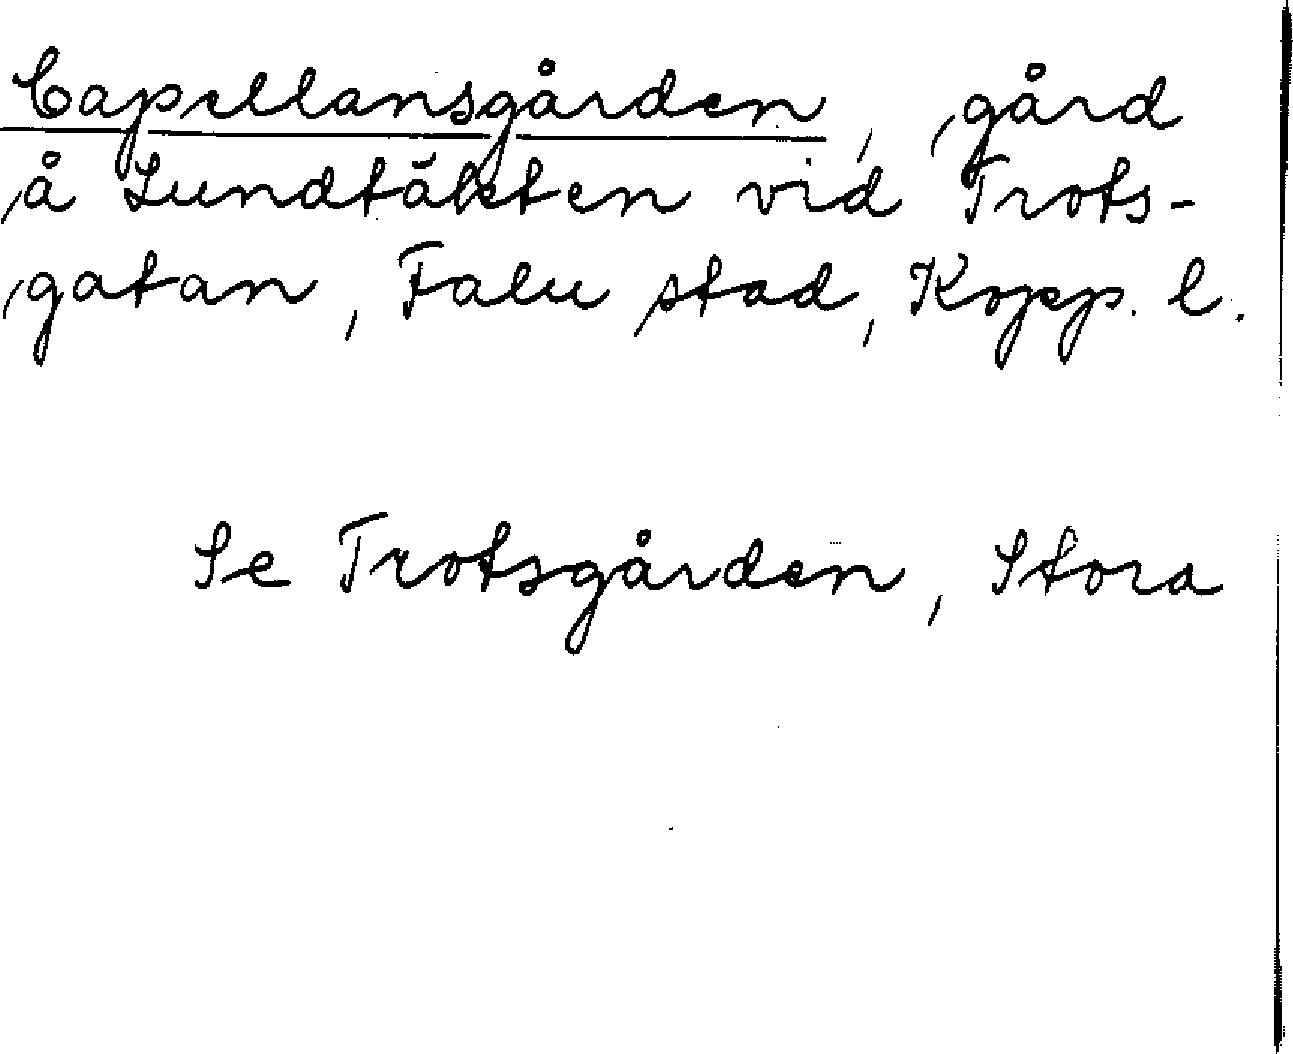 Capellansgården, gård
å Lundtäkten vid Trots-
gatan, Falu stad, Kopp. l.
Se Trotsgården, Stora